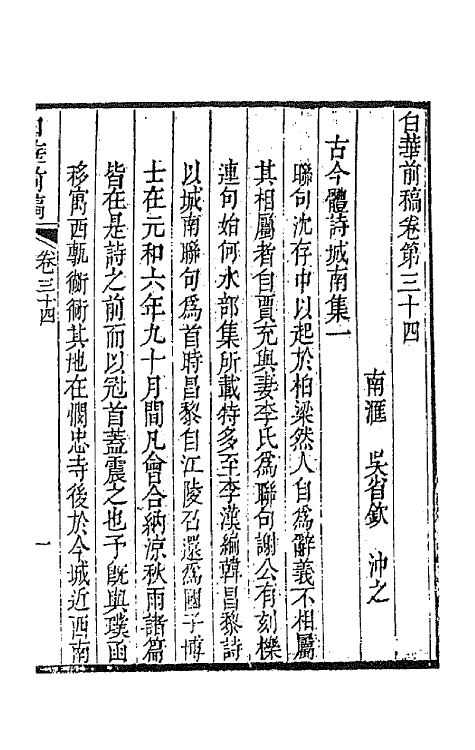 白華前稿卷第三十四
南滙 吳省欽 沖之
古今體詩城南集一
聯句沈存中以起於柏梁然人自為辭義不相屬
其相屬者自賈充與妻李氏為聯句謝公有刻櫟
連句始何水部集所載特多至李漢編韓昌黎詩
以城南聯句為首時昌黎自江陵召還為國子博
士在元和六年九十月間凡會合納涼秋雨諸篇
皆在是詩之前而以冠首蓋震之也予旣與璞函
移寓西甎衚衕其地在憫忠寺後於今城近西南
白華前稿 卷三十四 一